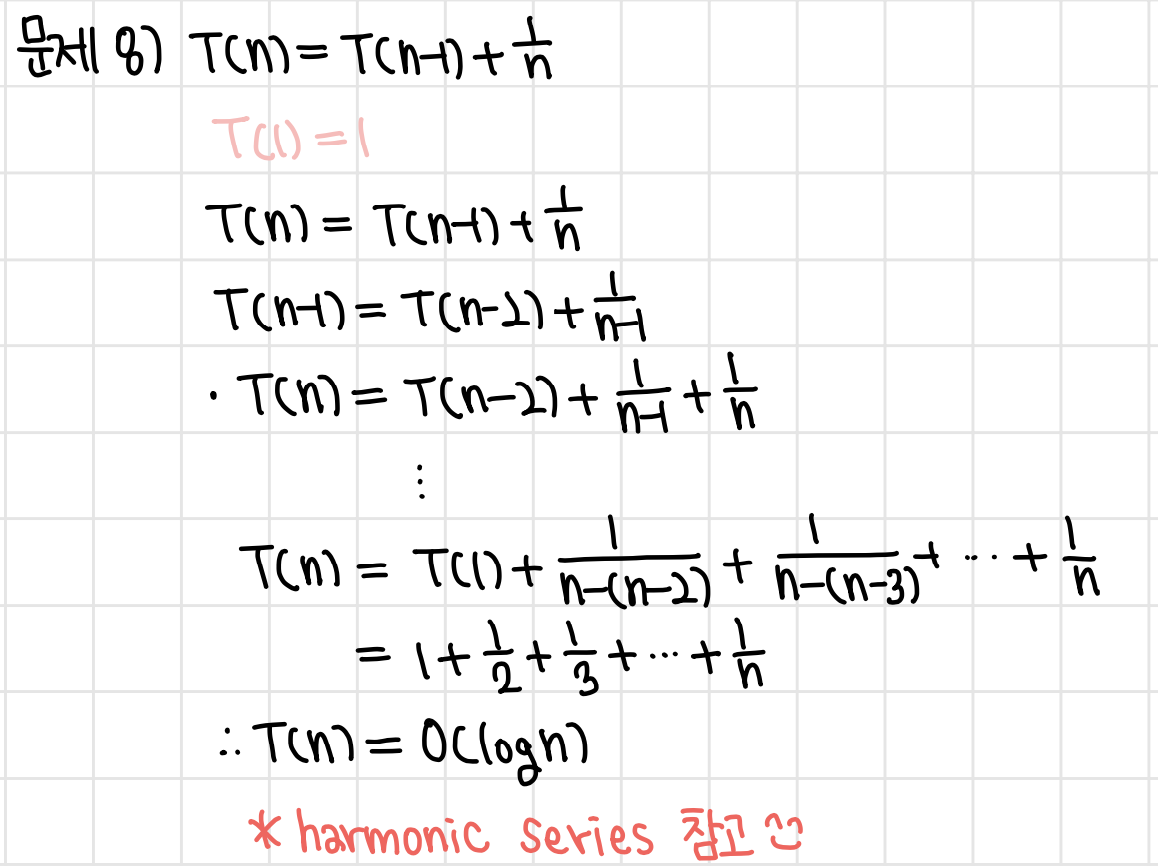 문제 8) T(n) = T(n-1) + 1/n
T(1) = 1
T(n) = T(n-1) + 1/n
T(n-1) = T(n-2) + 1/(n-1)
· T(n) = T(n-2) + 1/(n-1) + 1/n
⋮
T(n) = T(1) + 1/(n-(n-2)) + 1/(n-(n-3)) + ··· + 1/n
= 1 + 1/2 + 1/3 + ··· + 1/n
∴ T(n) = O(log n)
* harmonic series 참고